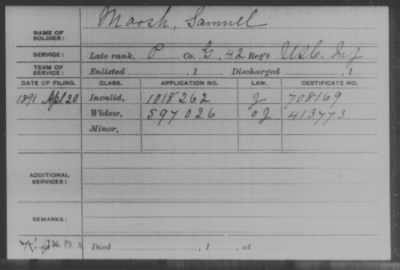 NAME OF SOLDIER: Marsh, Samuel
SERVICE: Late rank, P Co. G, 42 Reg't U.S.C. Inf
TERM OF SERVICE: Enlisted , 1 Discharged , 1
DATE OF FILING. CLASS. APPLICATION NO. LAW. CERTIFICATE NO.
1891 Apl 20 Invalid, 1018262 J 708169
Widow, 597026 J 413773
Minor,
ADDITIONAL SERVICES:
REMARKS:
Died , 1 , at